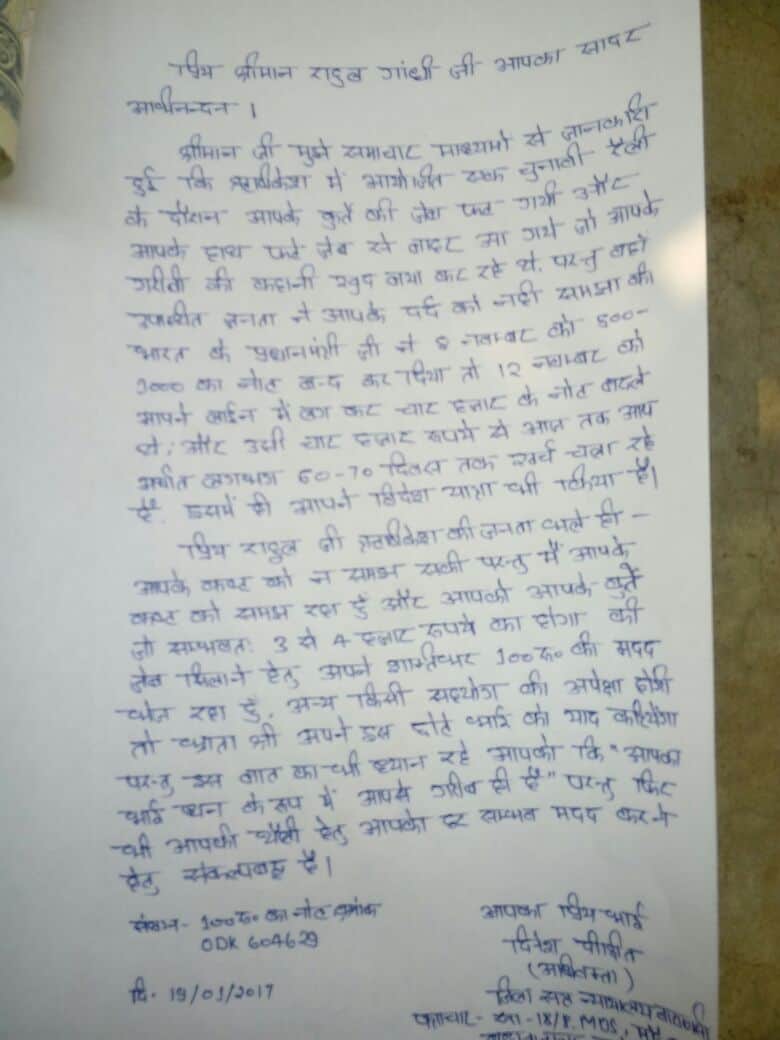 प्रिय श्रीमान राहुल गांधी जी आपका सादर
अभिनन्दन ।
श्रीमान जी मुझे समाचार माध्यमो से जानकारी
हुई कि ऋषीकेश में आयोजित एक चुनावी रैली
के दौरान आपके कुर्ते की जेब फट गयी और
आपके हाथ फटे जेब से बाहर आ गये जो आपके
गरीबी की कहानी खुद बया कर रहे थे. परन्तु वहाँ
उपस्थीत जनता ने आपके दर्द को नही समझा की
भारत के प्रधानमंत्री जी ने 8 नवम्बर को 500-
1000 का नोट बन्द कर दिया तो 12 नवम्बर को
आपने लाईन में लग कर चार हजार के नोट बदले
थे; और उसी चार हजार रूपये से आज तक आप
अर्थात लगभग 60-70 दिवस तक खर्च चला रहे
है. इसमें ही आपने विदेश यात्रा भी किया है।
प्रिय राहुल जी ऋषीकेश की जनता भले ही -
आपके कष्ट को न समझ सकी परन्तु मैं आपके
कष्ट को समझ रहा हुँ और आपको आपके कुर्ते
जो सम्भवत: 3 से 4 हजार रूपये का होगा की
जेब सिलाने हेतु अपने शक्तिभर 100रू० की मदद
भेज रहा हुँ, अन्य किसी सहयोग की अपेक्षा होगी
तो भ्राता श्री अपने इस छोटे भाई को याद करियेगा
परन्तु इस बात का भी ध्यान रहे आपको कि "आपका
भाई धन के रूप में आपसे गरीब ही है" परन्तु फिर
भी आपकी थैली हेतु आपका हर सम्भव मदद करने
हेतु संकल्पबद्ध है।
संलग्न- 100रू० का नोट क्रमांक
ODK 604629
दि. 19/01/2017
आपका प्रिय भाई
दिनेश दीक्षित
(अधिवक्ता)
जिला सत्र न्यायालय वाराणसी
पत्राचार- -18/P. MDS,